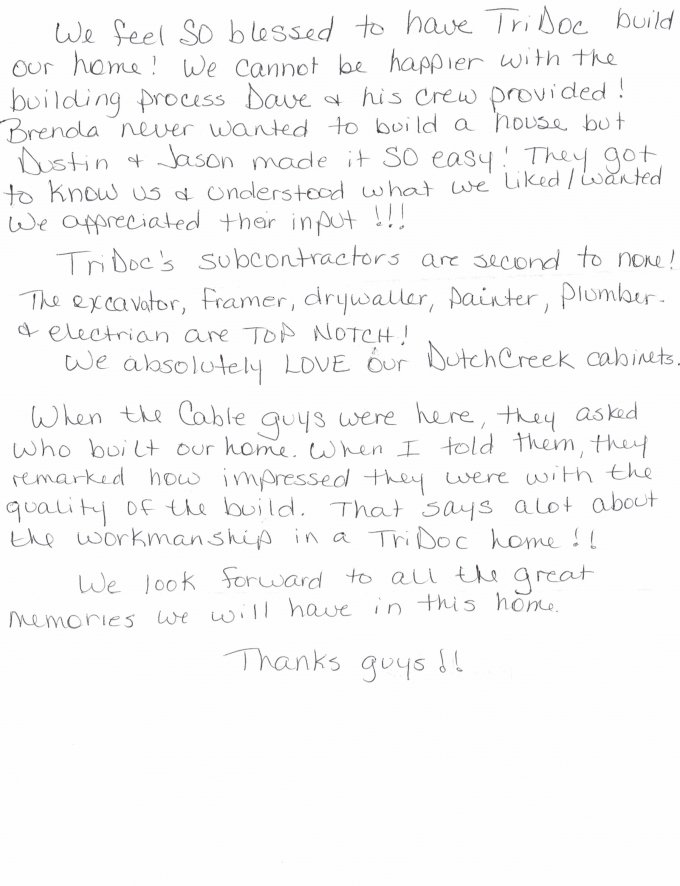 We feel SO blessed to have TriDoc build
our home! We cannot be happier with the
building process Dave & his crew provided!
Brenda never wanted to build a house but
Dustin & Jason made it SO easy! They got
to know us & understood what we liked/wanted
We appreciated their input !!!
TriDoc's subcontractors are second to none!
The excavator, framer, drywaller, painter, plumber.
& electrian are TOP NOTCH!
We absolutely LOVE our DutchCreek cabinets.
When the Cable guys were here, they asked
who built our home. When I told them, they
remarked how impressed they were with the
quality of the build. That says alot about
the workmanship in a TriDoc home!!
We look forward to all the great
memories we will have in this home.
Thanks guys!!